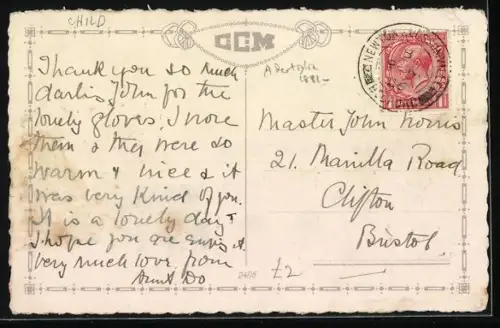 CHILD
GCM
Thank you so much
darling John for the
lovely gloves, I wore
them & they were so
warm & nice & it
was very kind of you.
It is a lovely day &
I hope you are enjoying it
very much love from
Aunt Do
1881-
Master John Norris
21. Manilla Road
Clifton
Bristol.
2486
£2